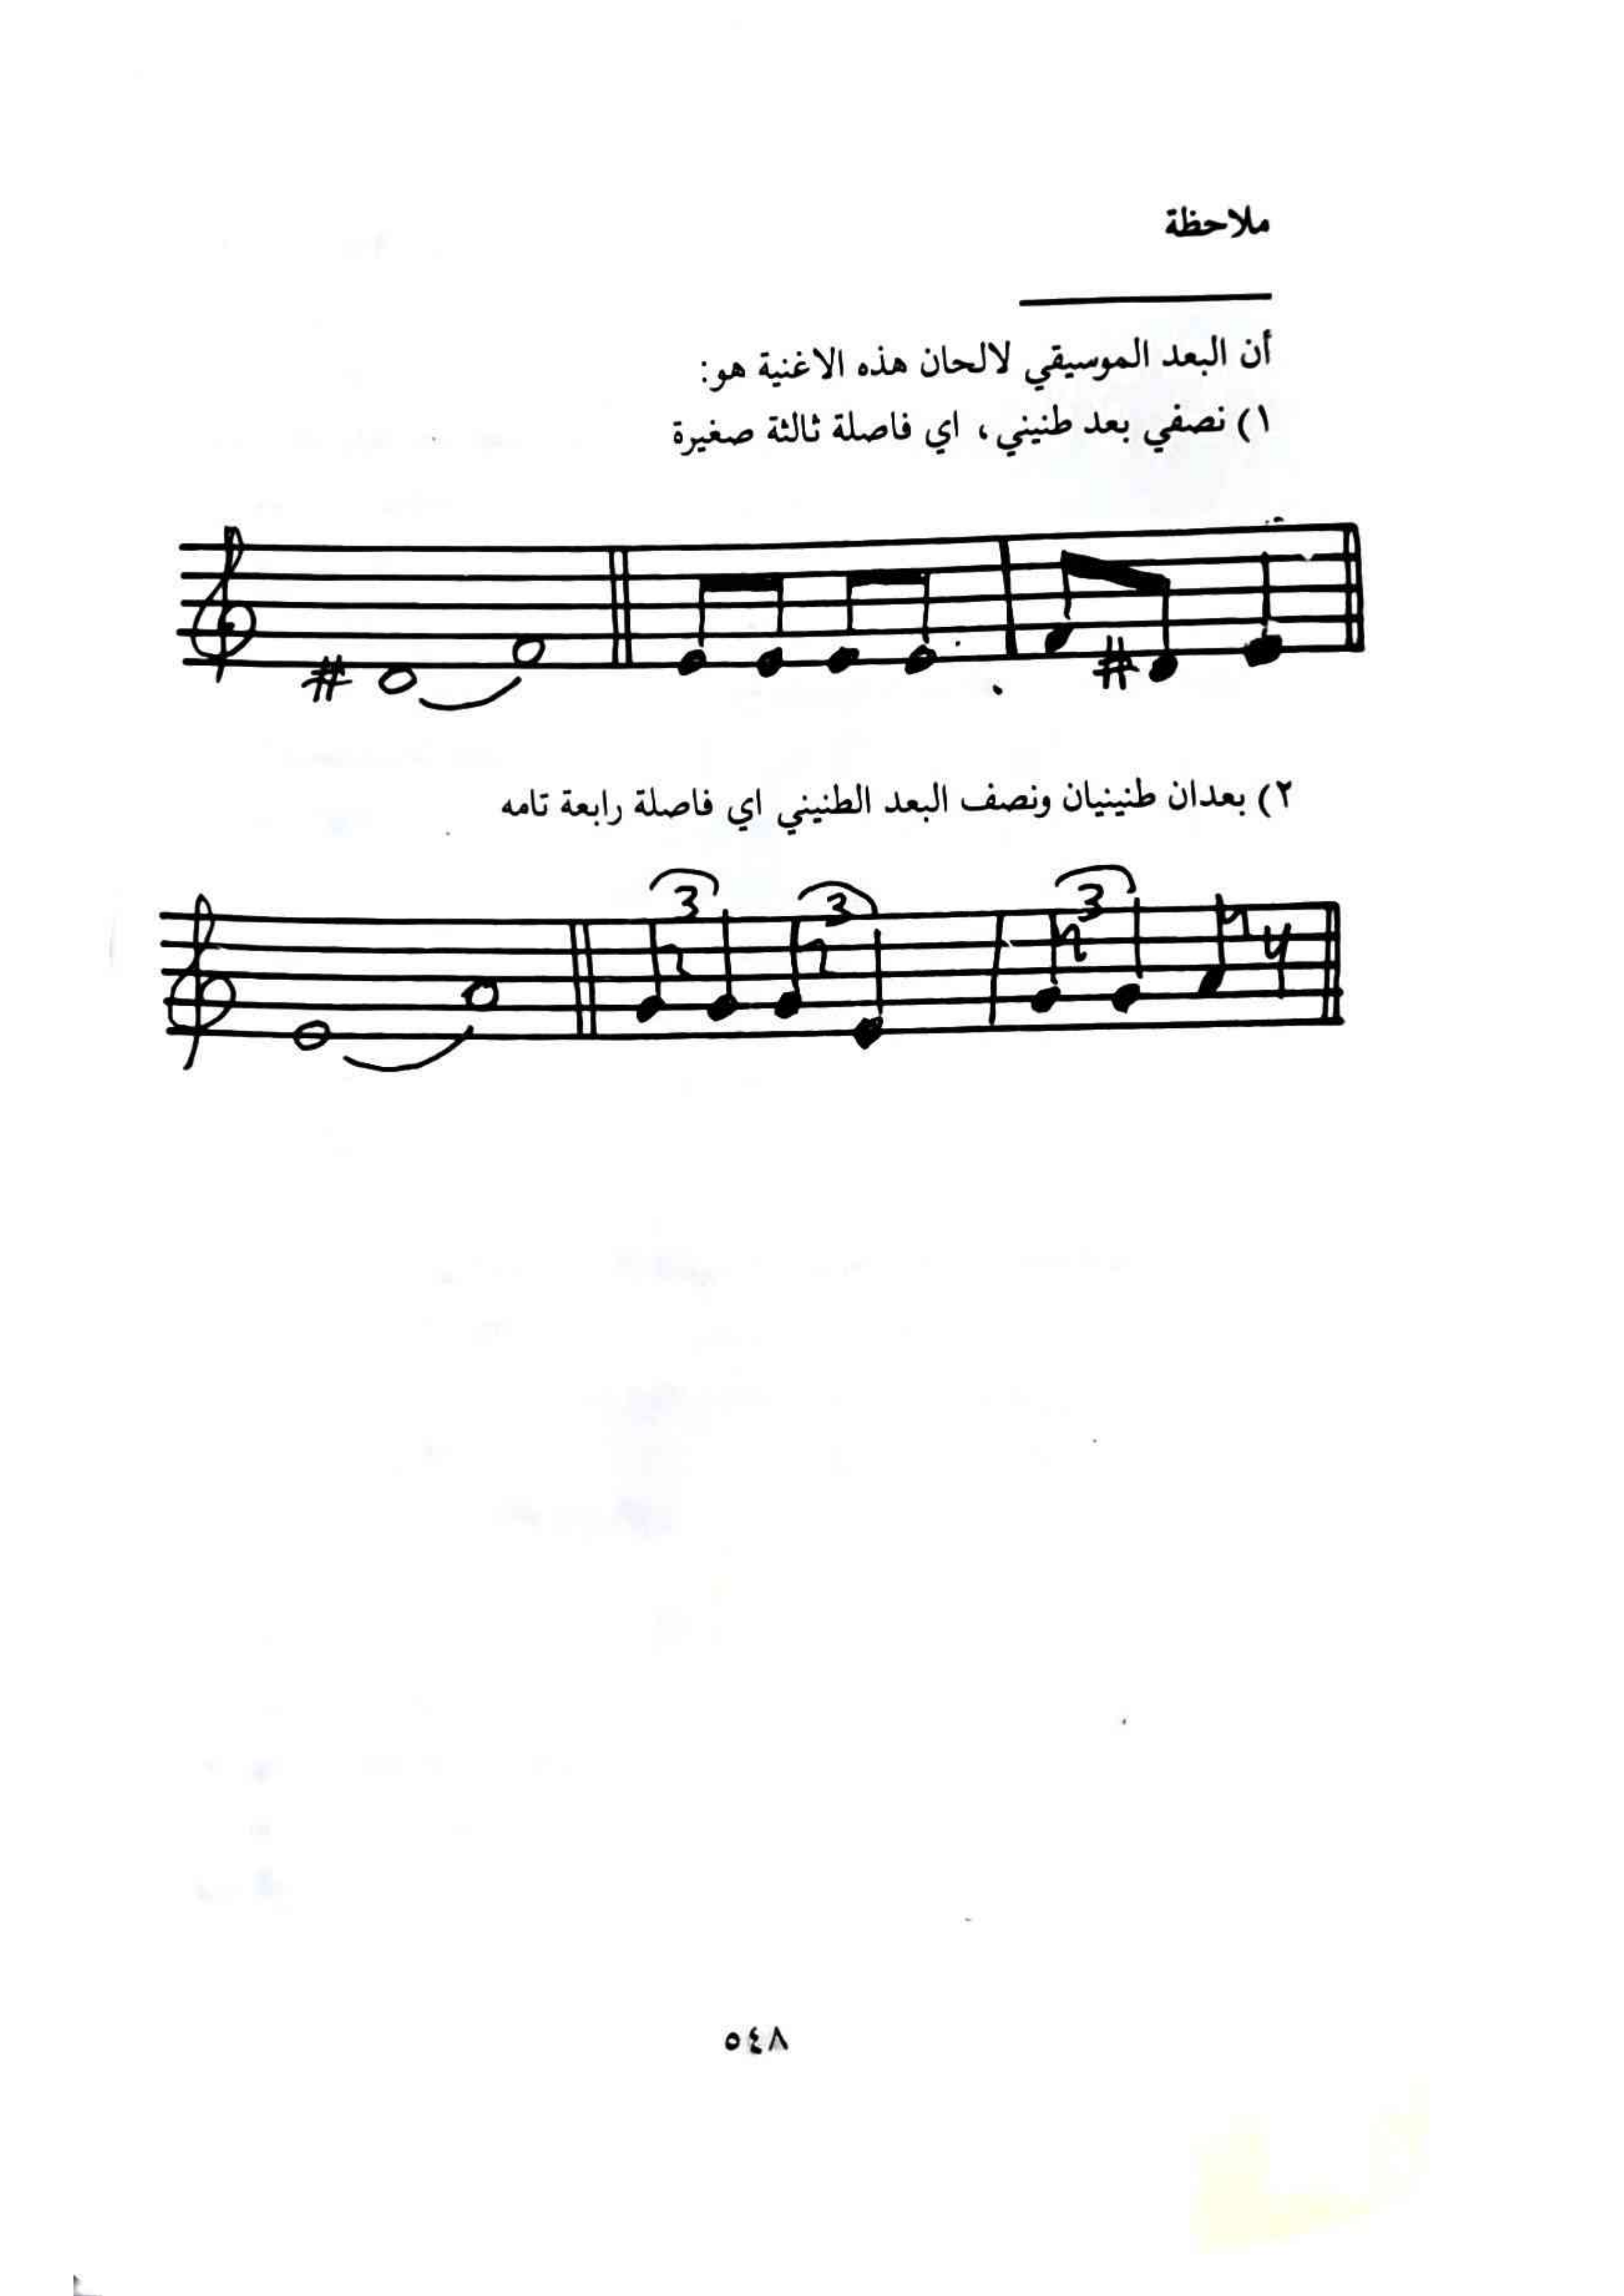 ملاحظة
أن البعد الموسيقي لالحان هذه الاغنية هو:
١) نصفي بعد طنيني، اي فاصلة ثالثة صغيرة
٢) بعدان طنينيان ونصف البعد الطنيني اي فاصلة رابعة تامه
3 3 3
٥٤٨